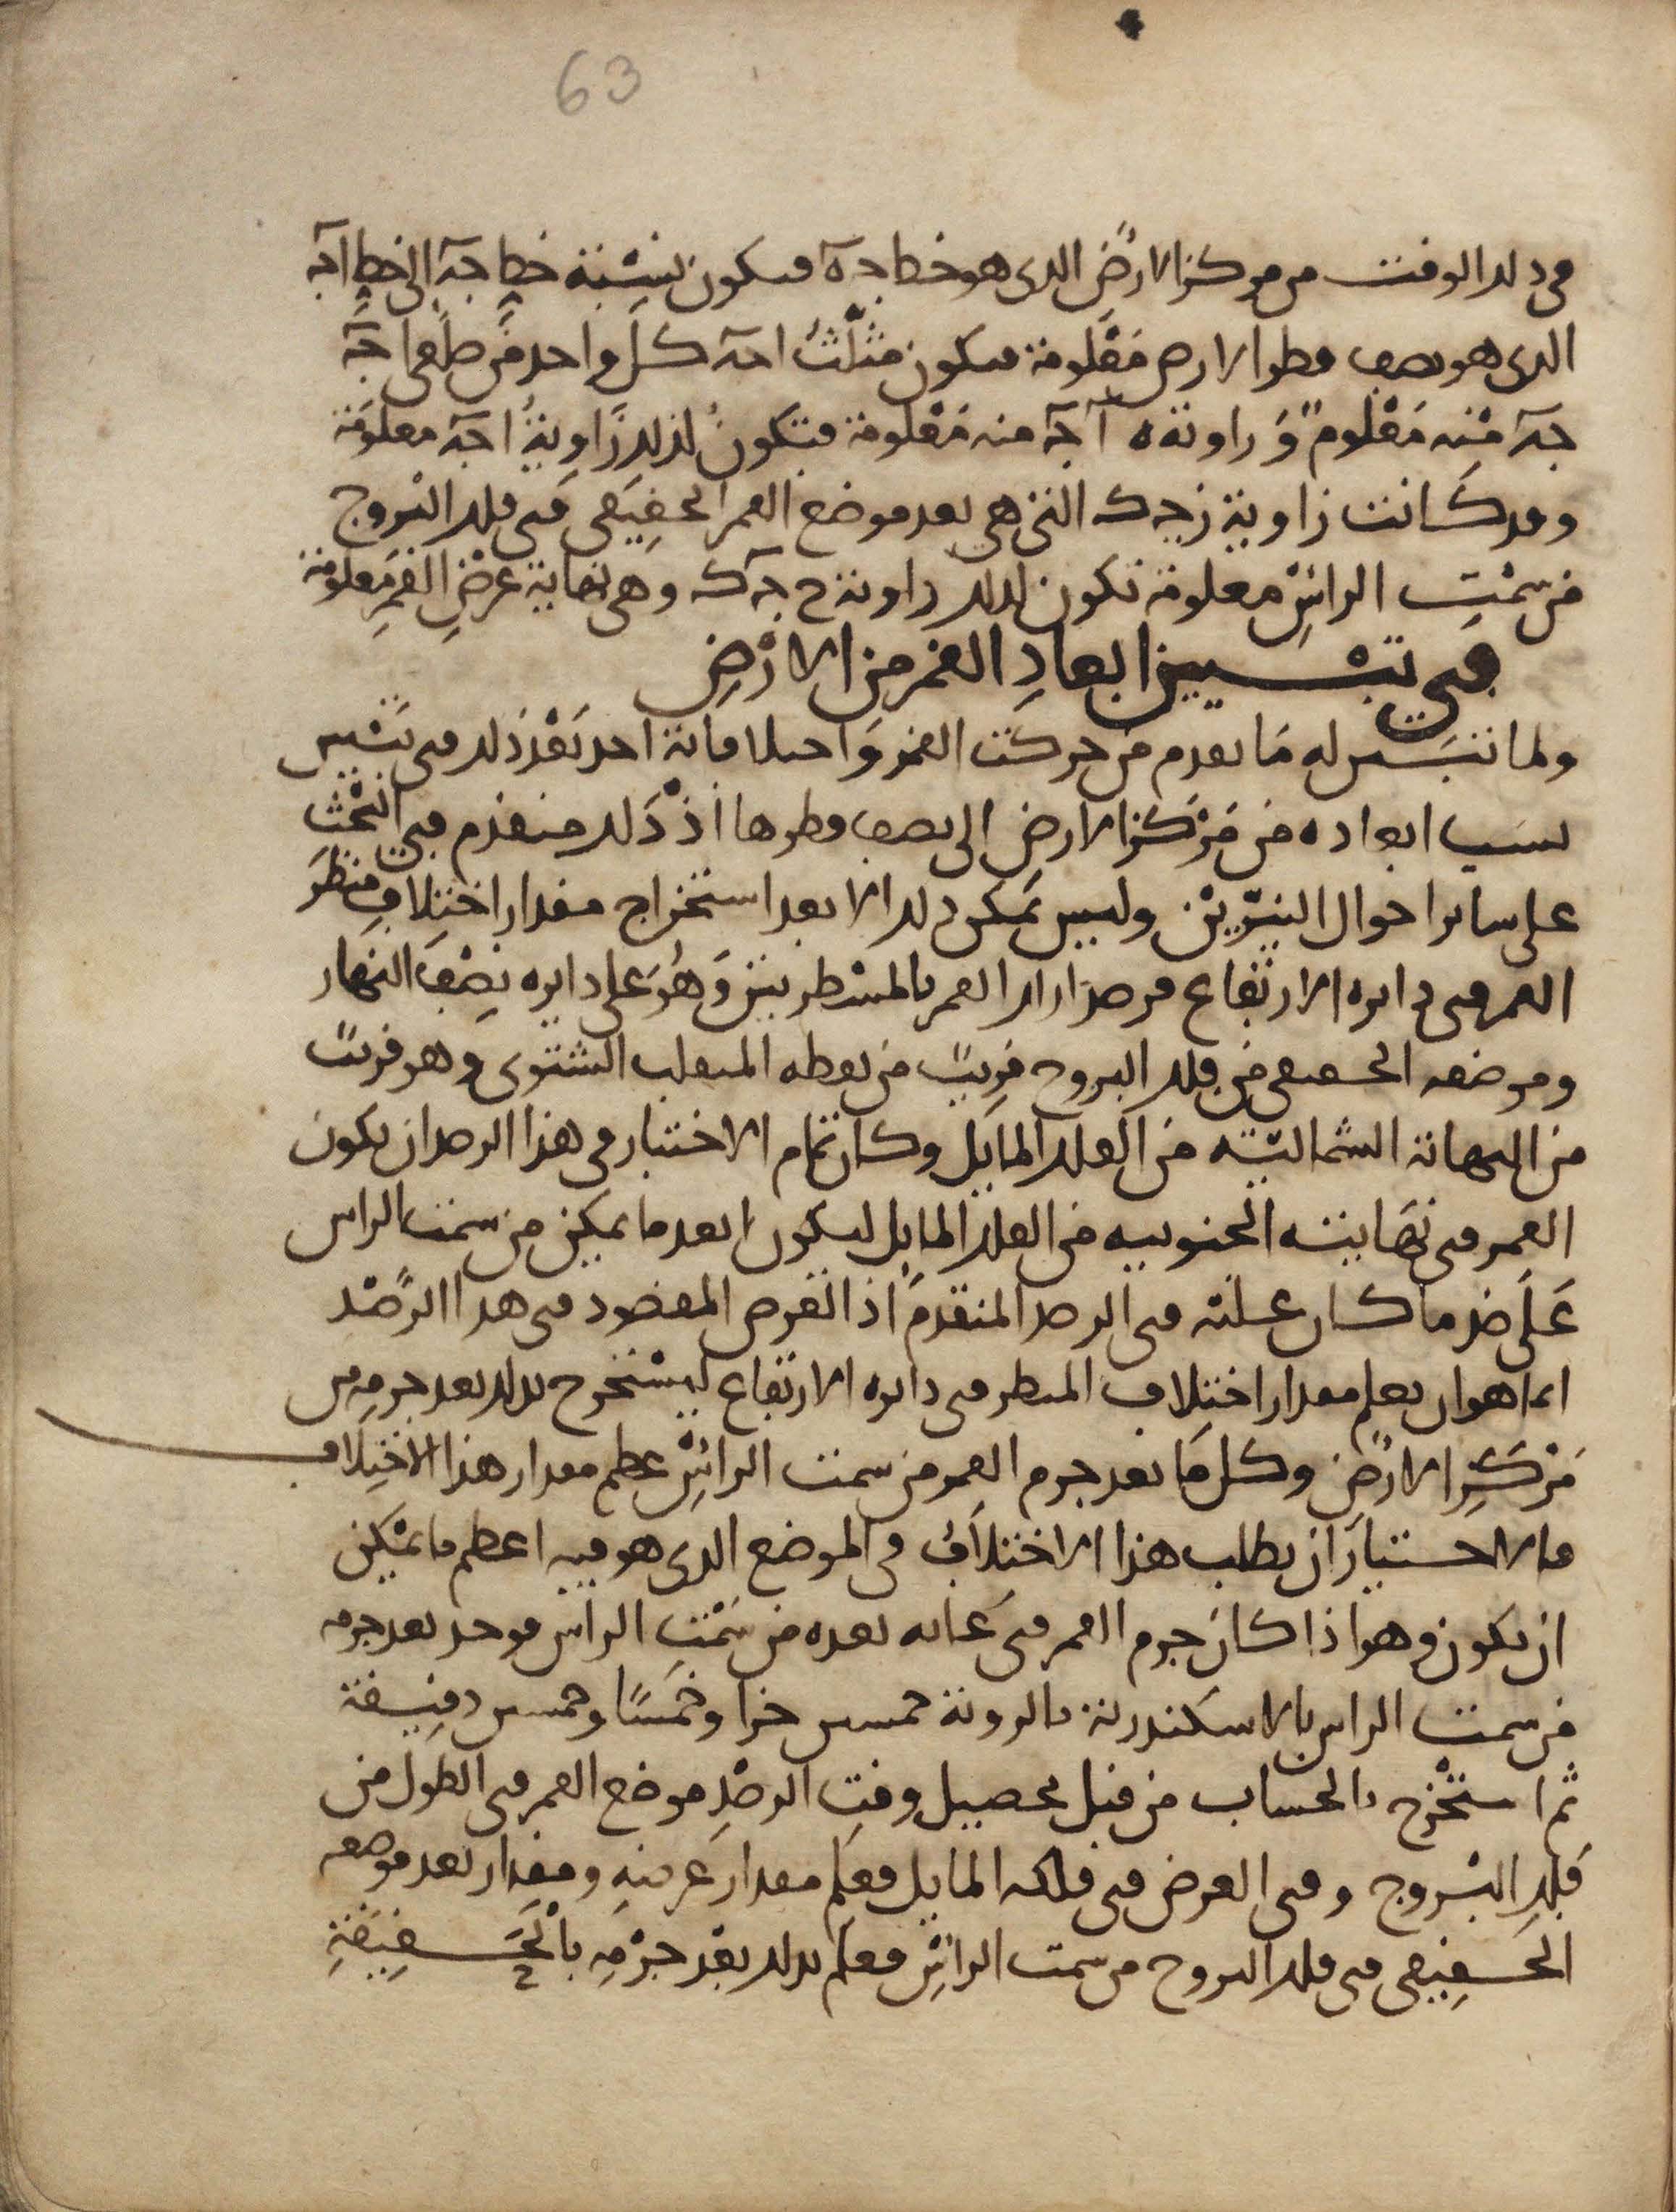 63
في ذلك الوقت من مركز الارض الذي هو خط جه فيكون نسبة خط جه الى خط اه
الذي هو نصف قطر الارض معلومة فيكون مثلث اجه كل واحد من ضلعي اجه
جه منه معلوم وزاوية ه ا جه منه معلومة فتكون لذلك زاوية اجه معلومة
وقد كانت زاوية زجه ك التي هي بعد موضع القمر الحقيقي في فلك البروج
من سمت الراس معلومة تكون لذلك زاوية ح جه ك وهي نهاية عرض القمر معلومة
في تبيين ابعاد القمر من الارض
ولما تبين له ما تقدم من حركت القمر و فانه اخذ بعد ذلك في تبيين
نسب ابعاده من مركز الارض الى نصف قطرها اذ ذلك متقدم في البحث
على ساير احوال النيرين وليس يمكن ذلك الا بعد استخراج مقدار اختلاف منظر
القمر في دايره الارتفاع فرصد لذلك القمر بالمسطرتين وهو على دايره نصف النهار
وموضعه الحقيقي من فلك البروج قريب من نقطه المنقلب الشتوي وهو قريب
من النهاية الشمالية من الفلك المايل وكان تمام الاختبار في هذا الرصد ان يكون
القمر في نهايته الجنوبيه من الفلك المايل ليكون ابعد ما يمكن من سمت الراس
على ضد ما كان عليه في الرصد المتقدم اذ الغرض المقصود في هذا الرصد
انما هو ان يعلم مقدار اختلاف المنظر في دايره الارتفاع ليستخرج بذلك بعد جرمه من
مركز الارض وكل ما بعد جرم القمر من سمت الراس عظم مقدار هذا الاختلاف
فالاختيار ان يطلب هذا الاختلاف في الموضع الذي هو فيه اعظم ما يمكن
ان يكون وهو اذا كان جرم القمر في غايه بعده من سمت الراس فوجد بعد جرمه
من سمت الراس بالاسكندرية بالرؤية خمسين جزا وخمسا وخمسين دقيقة
ثم استخرج بالحساب من قبل تحصيل وقت الرصد موضع القمر في الطول من
فلك البروج وفي العرض في فلكه المايل فعلم مقدار عرضه ومقدار بعد موضعه
الحقيقي في فلك البروج من سمت الراس فعلم بذلك بعد جرمه بالحقيقة